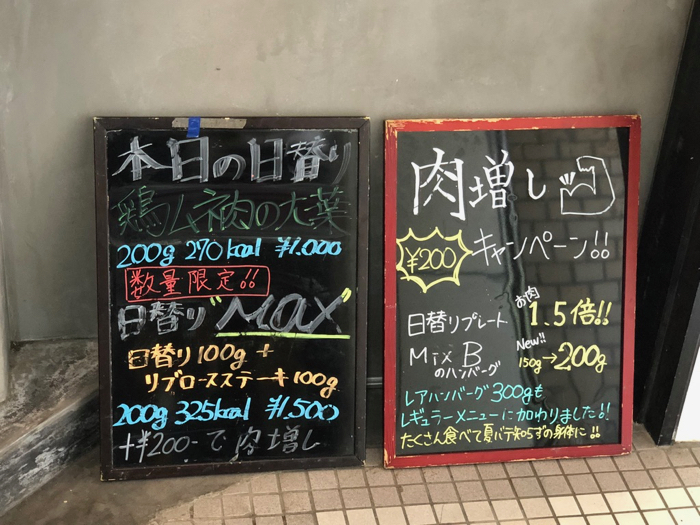 本日の日替り
鶏ムネ肉の大葉
200g 270kcal ¥1.000
数量限定!!
日替り"Max"
日替り100g +
リブロースステーキ100g
200g 325kcal ¥1.500
+¥200-で肉増し
肉増し
¥200
キャンペーン!!
日替りプレート
お肉
1.5倍!!
Mix B
のハンバーグ
New!!
150g→200g
レアハンバーグ300gも
レギュラーメニューに加わりました!!
たくさん食べて夏バテ知らずの身体に!!